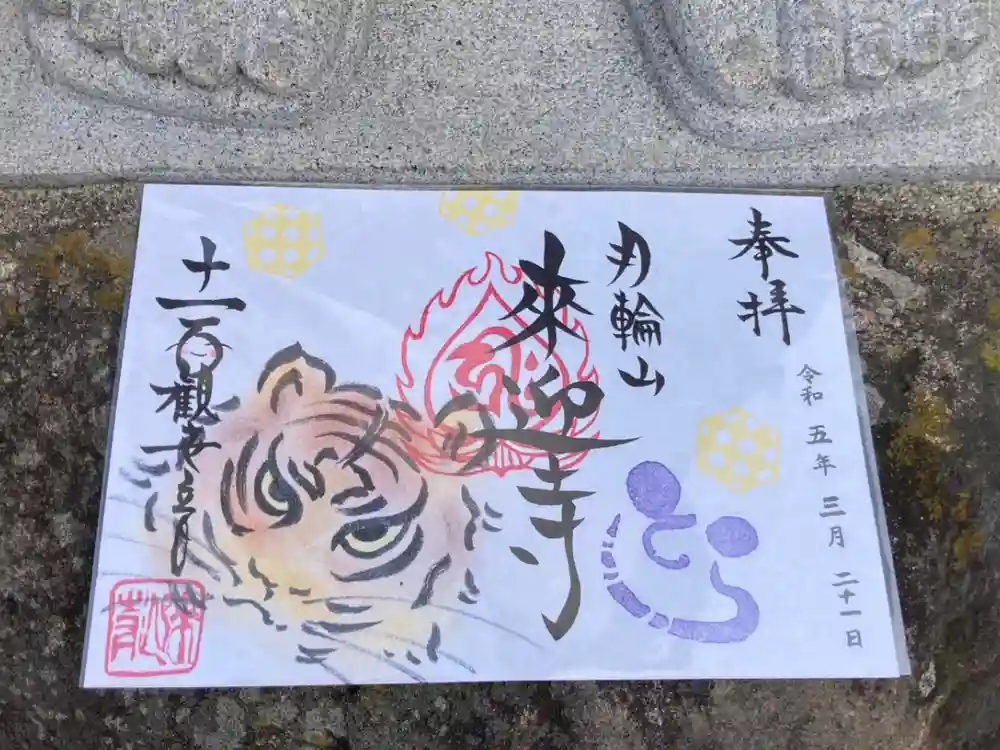 奉拝
令和五年三月二十一日
月輪山
來迎寺
十一面観世音